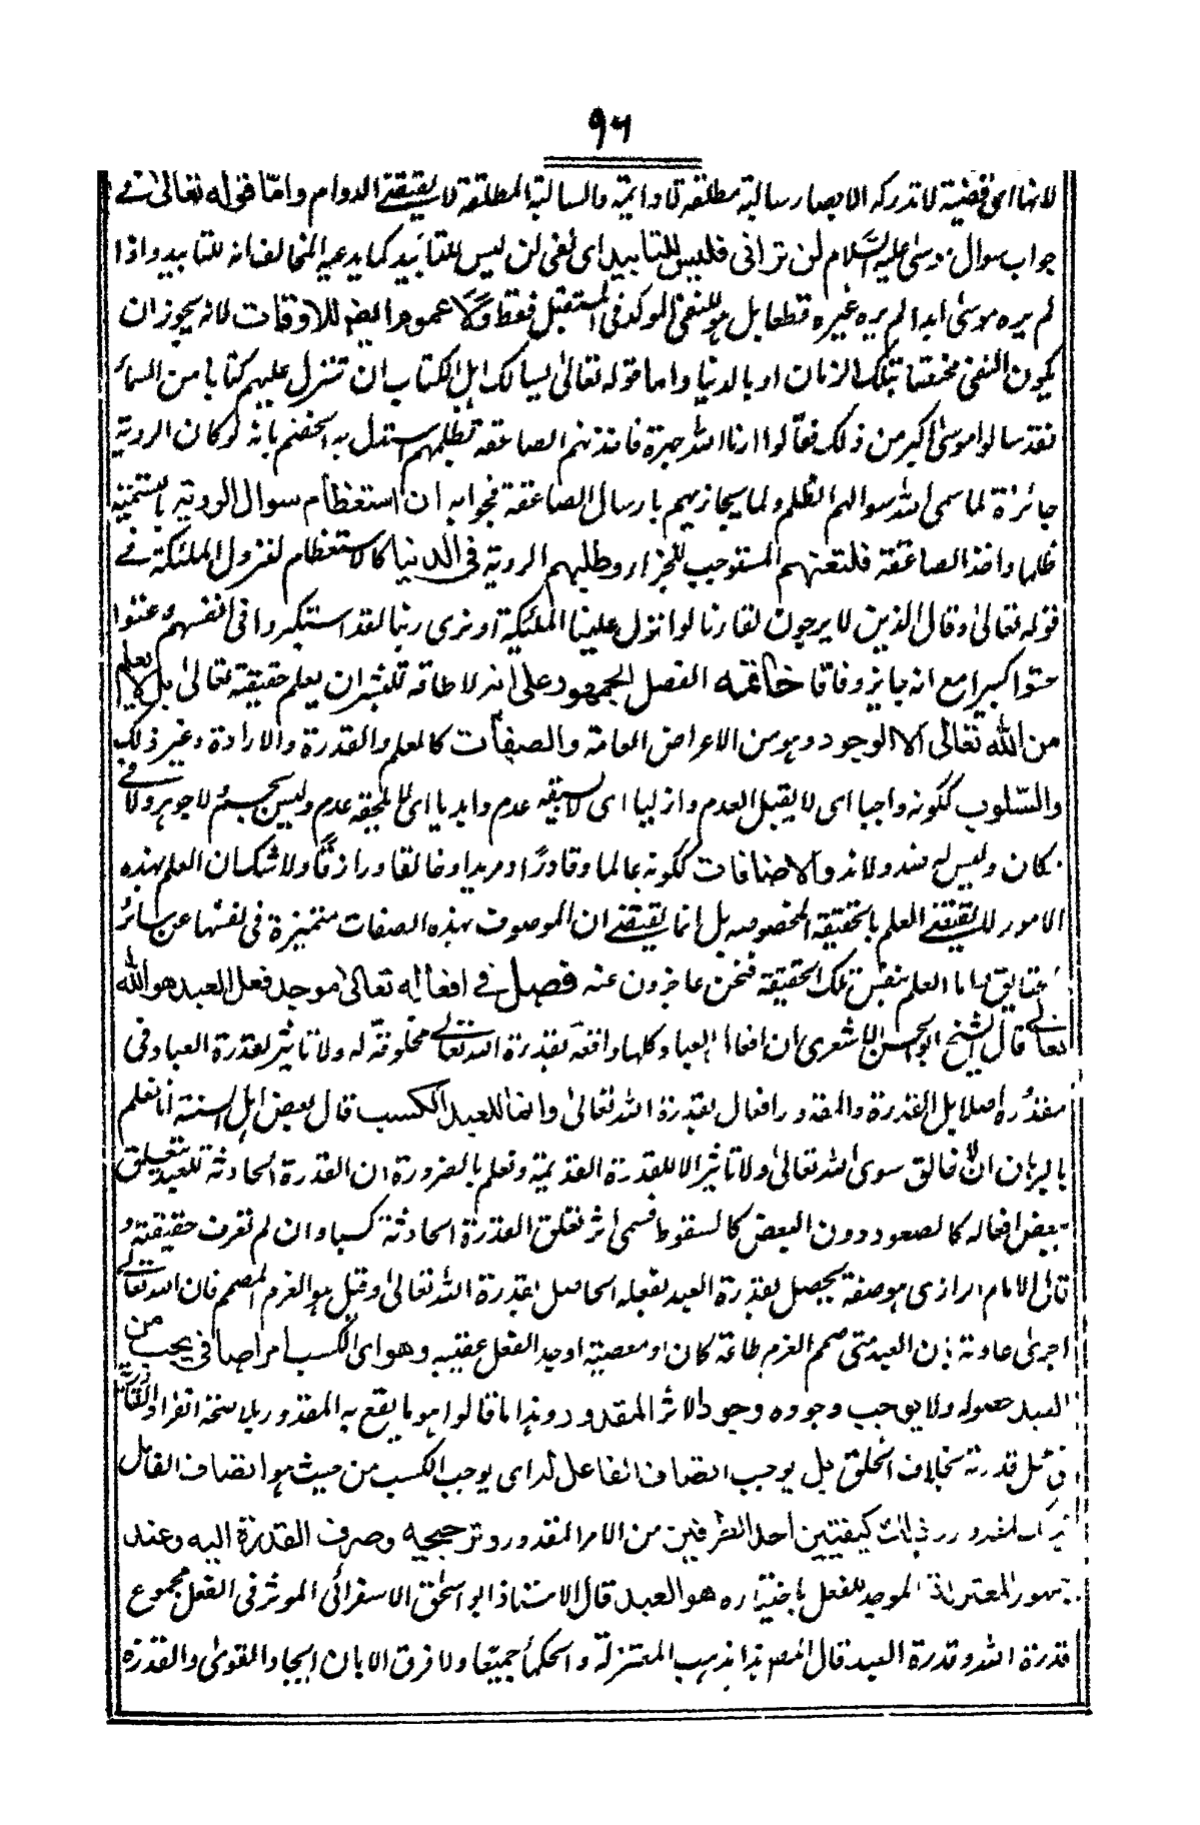 ٩٦
لانها اى قضية لا تدركه الابصار سالبة مطلقة لا دائمة والسالبة المطلقة لا يقتضے الدوام واما قوله تعالىٰ فے
جواب سوال موسىٰ عليه السَّلام لن ترانى فليس للتابيد اى نفى لن ليس للتائيد كما يدعيه المخالف انه للتابيد واذا
لم يره موسىٰ ابدا لم يره غيره قطعا بل هو للنفى الموكد فى المستقبل فقط وكا عموم النفى للاوقات لانه يجوز ان
يكون النفى مختصا بتلك الزمان او بالدنيا واما قوله تعالىٰ يسالك اهل الكتاب ان تنزل عليهم كتابا من السماء
فقد سالوا موسىٰ اكبر من ذلك فقالوا ارنا الله جهرة فاخذتهم الصاعقة بظلمهم استدل به الخصم بانه لو كان الروية
جائزة لما سمى الله سوالهم الظلم ولما يجازيهم بارسال الصاعقة فجوابه ان استعظام سوال الروية وتسميته
ظلما واخذ الصاعقة فلتعنتهم المستوجب للجزاء وطلبهم الروية فى الدنيا كالاستعظام لنزول الملئكة فے
قوله تعالىٰ وقال الذين لا يرجون لقاءنا لولا نزل علينا الملئكة او نرى ربنا لقد استكبروا فى انفسهم وعتوا
عتوا كبيرا مع انه جائز وفاقا خاتمة الفصل الجمهور على انه لا طاقة للبشر ان يعلم حقيقته تعالىٰ بل لا يعلم
من الله تعالىٰ الا الوجود وهو من الاعراض العامة والصفات كالعلم والقدرة والارادة وغير ذلك
والسّلوب ككونه واجبا اى لا يقبل العدم وازليا اى لا يسبقه عدم وابديا اى لا يلحقه عدم وليس بجسم لا جوهر ولا فے
مكان وليس له ضد ولا ند والاضافات ككونه عالما وقادرًا ومريدا وخالقا ورازقًا ولا شك ان العلم بهذه
الامور لا يقتضے العلم بالحقيقة المخصوصة بل انما يقتضے ان الموصوف بهذه الصفات متميزة فى نفسها عن سائر
الحقايق واما العلم بنفس تلك الحقيقة فنحن عاجزون عنه فصل فے افعاله تعالىٰ موجد فعل العبد هو الله
تعالےٰ قال الشيخ ابو الحسن الاشعرى ان افعال العباد كلها واقعة بقدرة الله تعالےٰ مخلوقة له ولا تاثير لقدرة العباد فى
مقدوره اصلا بل القدرة والمقدور افعال بقدرة الله تعالىٰ وانما للعبد الكسب قال بعض اهل السنة انا نعلم
بالبرهان ان لا خالق سوى الله تعالىٰ ولا تاثير الا للقدرة القديمة ونعلم بالضرورة ان القدرة الحادثة للعبد يتعلق
ببعض افعاله كالصعود دون البعض كالسقوط فسمى اثر تعلق القدرة الحادثة كسبا وان لم نعرف حقيقته و
قال الامام الرازى هو صفة يحصل بقدرة العبد بفعله الحاصل بقدرة الله تعالىٰ وقيل هو العزم المصمم فان الله تعالےٰ
اجرىٰ عادته بان العبد متى صمم العزم طاعة كان او معصية اوجد الفعل عقيبه وهو اى الكسب امر اضافى يجب من
العبد حصوله ولا يوجب وجوده وجود الاثر المقدور وهذا ما قالوا هو ما يقع به المقدور بلا صحة انفراد القادر
قدرته بخلاف الخلق بل يوجب اتصاف الفاعل له اى يوجب الكسب من حيث هو اتصاف الفاعل
بذلك المقدور كيفيتين احد الطرفين من الامر المقدور وترجيحه وصرف القدرة اليه وعند
جمهور المعتزلة الموجد للفعل باختياره هو العبد قال الاستاذ ابو اسحٰق الاسفرائى الموثر فى الفعل مجموع
قدرة الله وقدرة العبد قال المص هذا مذهب المعتزلة والحكماء جميعا ولا فرق الا بان ايجاد القوىٰ والقدرة